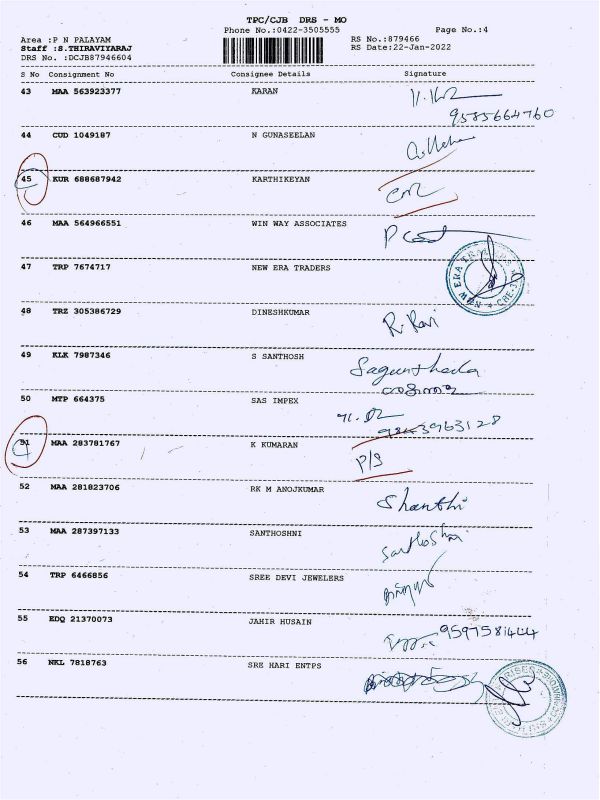 TPC/CJB DRS - MO
Phone No.:0422-3505555 Page No.:4
Area :P N PALAYAM RS No.:879466
Staff :S.THIRAVIYARAJ RS Date:22-Jan-2022
DRS No. :DCJB87946604
S No Consignment No Consignee Details Signature
43 MAA 563923377 KARAN
9585664760
44 CUD 1049187 N GUNASEELAN
45 KUR 688687942 KARTHIKEYAN
46 MAA 564966551 WIN WAY ASSOCIATES
47 TRP 7674717 NEW ERA TRADERS
NEW ERA TRADERS CBE-3
48 TRZ 305386729 DINESHKUMAR
R. Ravi
49 KLK 7987346 S SANTHOSH
50 MTP 664375 SAS IMPEX
9843963128
51 MAA 283781767 K KUMARAN
P/S
52 MAA 281823706 RK M ANOJKUMAR
Shanthi
53 MAA 287397133 SANTHOSHNI
54 TRP 6466856 SREE DEVI JEWELERS
55 EDQ 21370073 JAHIR HUSAIN
56 NKL 7818763 SRE HARI ENTPS